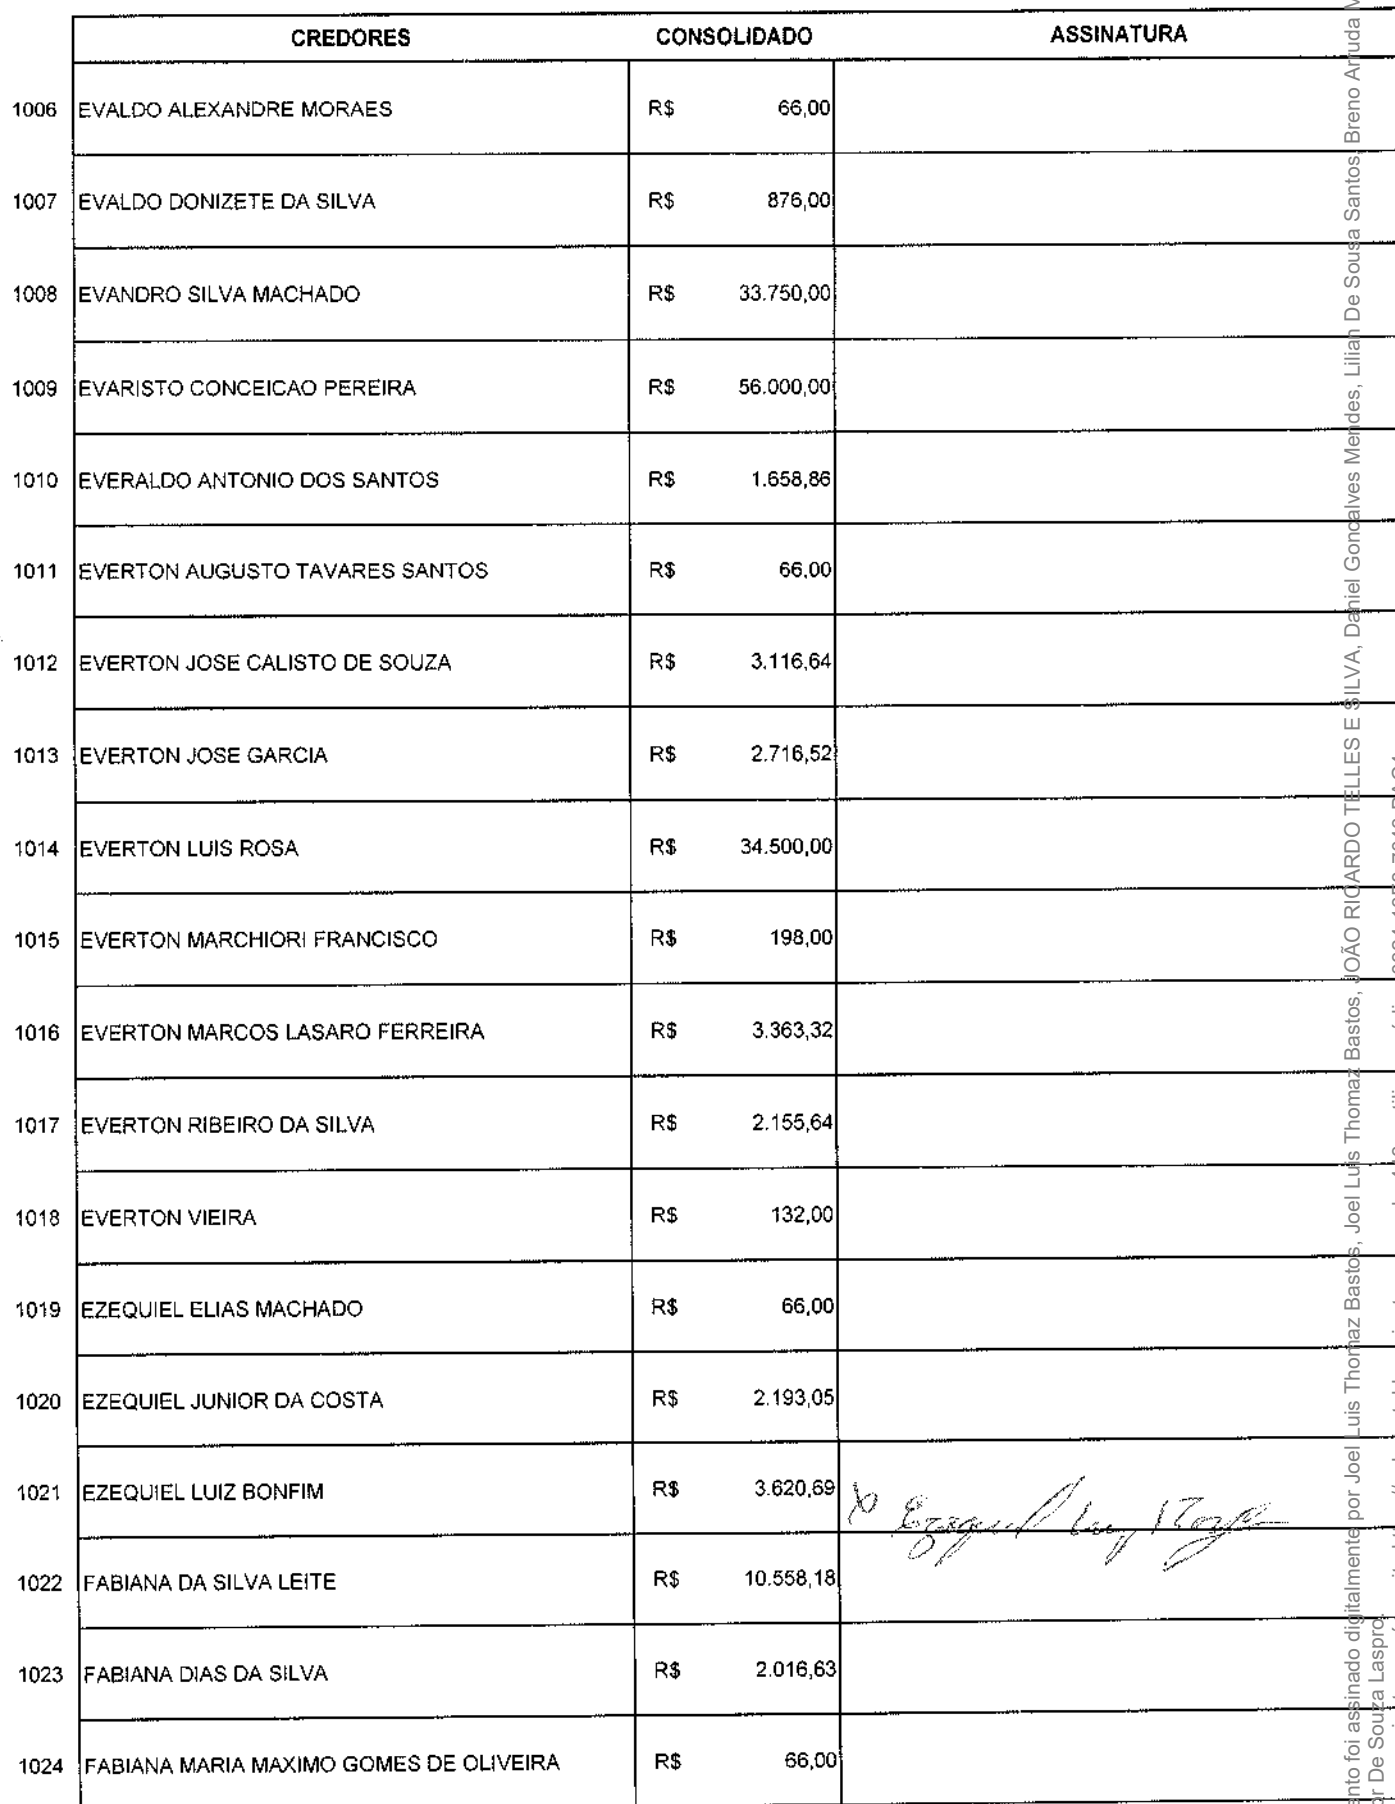 CREDORES CONSOLIDADO ASSINATURA
1006 EVALDO ALEXANDRE MORAES R$ 66,00
1007 EVALDO DONIZETE DA SILVA R$ 876,00
1008 EVANDRO SILVA MACHADO R$ 33.750,00
1009 EVARISTO CONCEICAO PEREIRA R$ 56.000,00
1010 EVERALDO ANTONIO DOS SANTOS R$ 1.658,86
1011 EVERTON AUGUSTO TAVARES SANTOS R$ 66,00
1012 EVERTON JOSE CALISTO DE SOUZA R$ 3.116,64
1013 EVERTON JOSE GARCIA R$ 2.716,52
1014 EVERTON LUIS ROSA R$ 34.500,00
1015 EVERTON MARCHIORI FRANCISCO R$ 198,00
1016 EVERTON MARCOS LASARO FERREIRA R$ 3.363,32
1017 EVERTON RIBEIRO DA SILVA R$ 2.155,64
1018 EVERTON VIEIRA R$ 132,00
1019 EZEQUIEL ELIAS MACHADO R$ 66,00
1020 EZEQUIEL JUNIOR DA COSTA R$ 2.193,05
1021 EZEQUIEL LUIZ BONFIM R$ 3.620,69
1022 FABIANA DA SILVA LEITE R$ 10.558,18
1023 FABIANA DIAS DA SILVA R$ 2.016,63
1024 FABIANA MARIA MAXIMO GOMES DE OLIVEIRA R$ 66,00
nto foi assinado digitalmente por Joel Luis Thomaz Bastos, Joel Luis Thomaz Bastos, JOÃO RICARDO TELLES E SILVA, Daniel Goncalves Mendes, Lilian De Sousa Santos, Breno Arruda M
or De Souza Laspro.